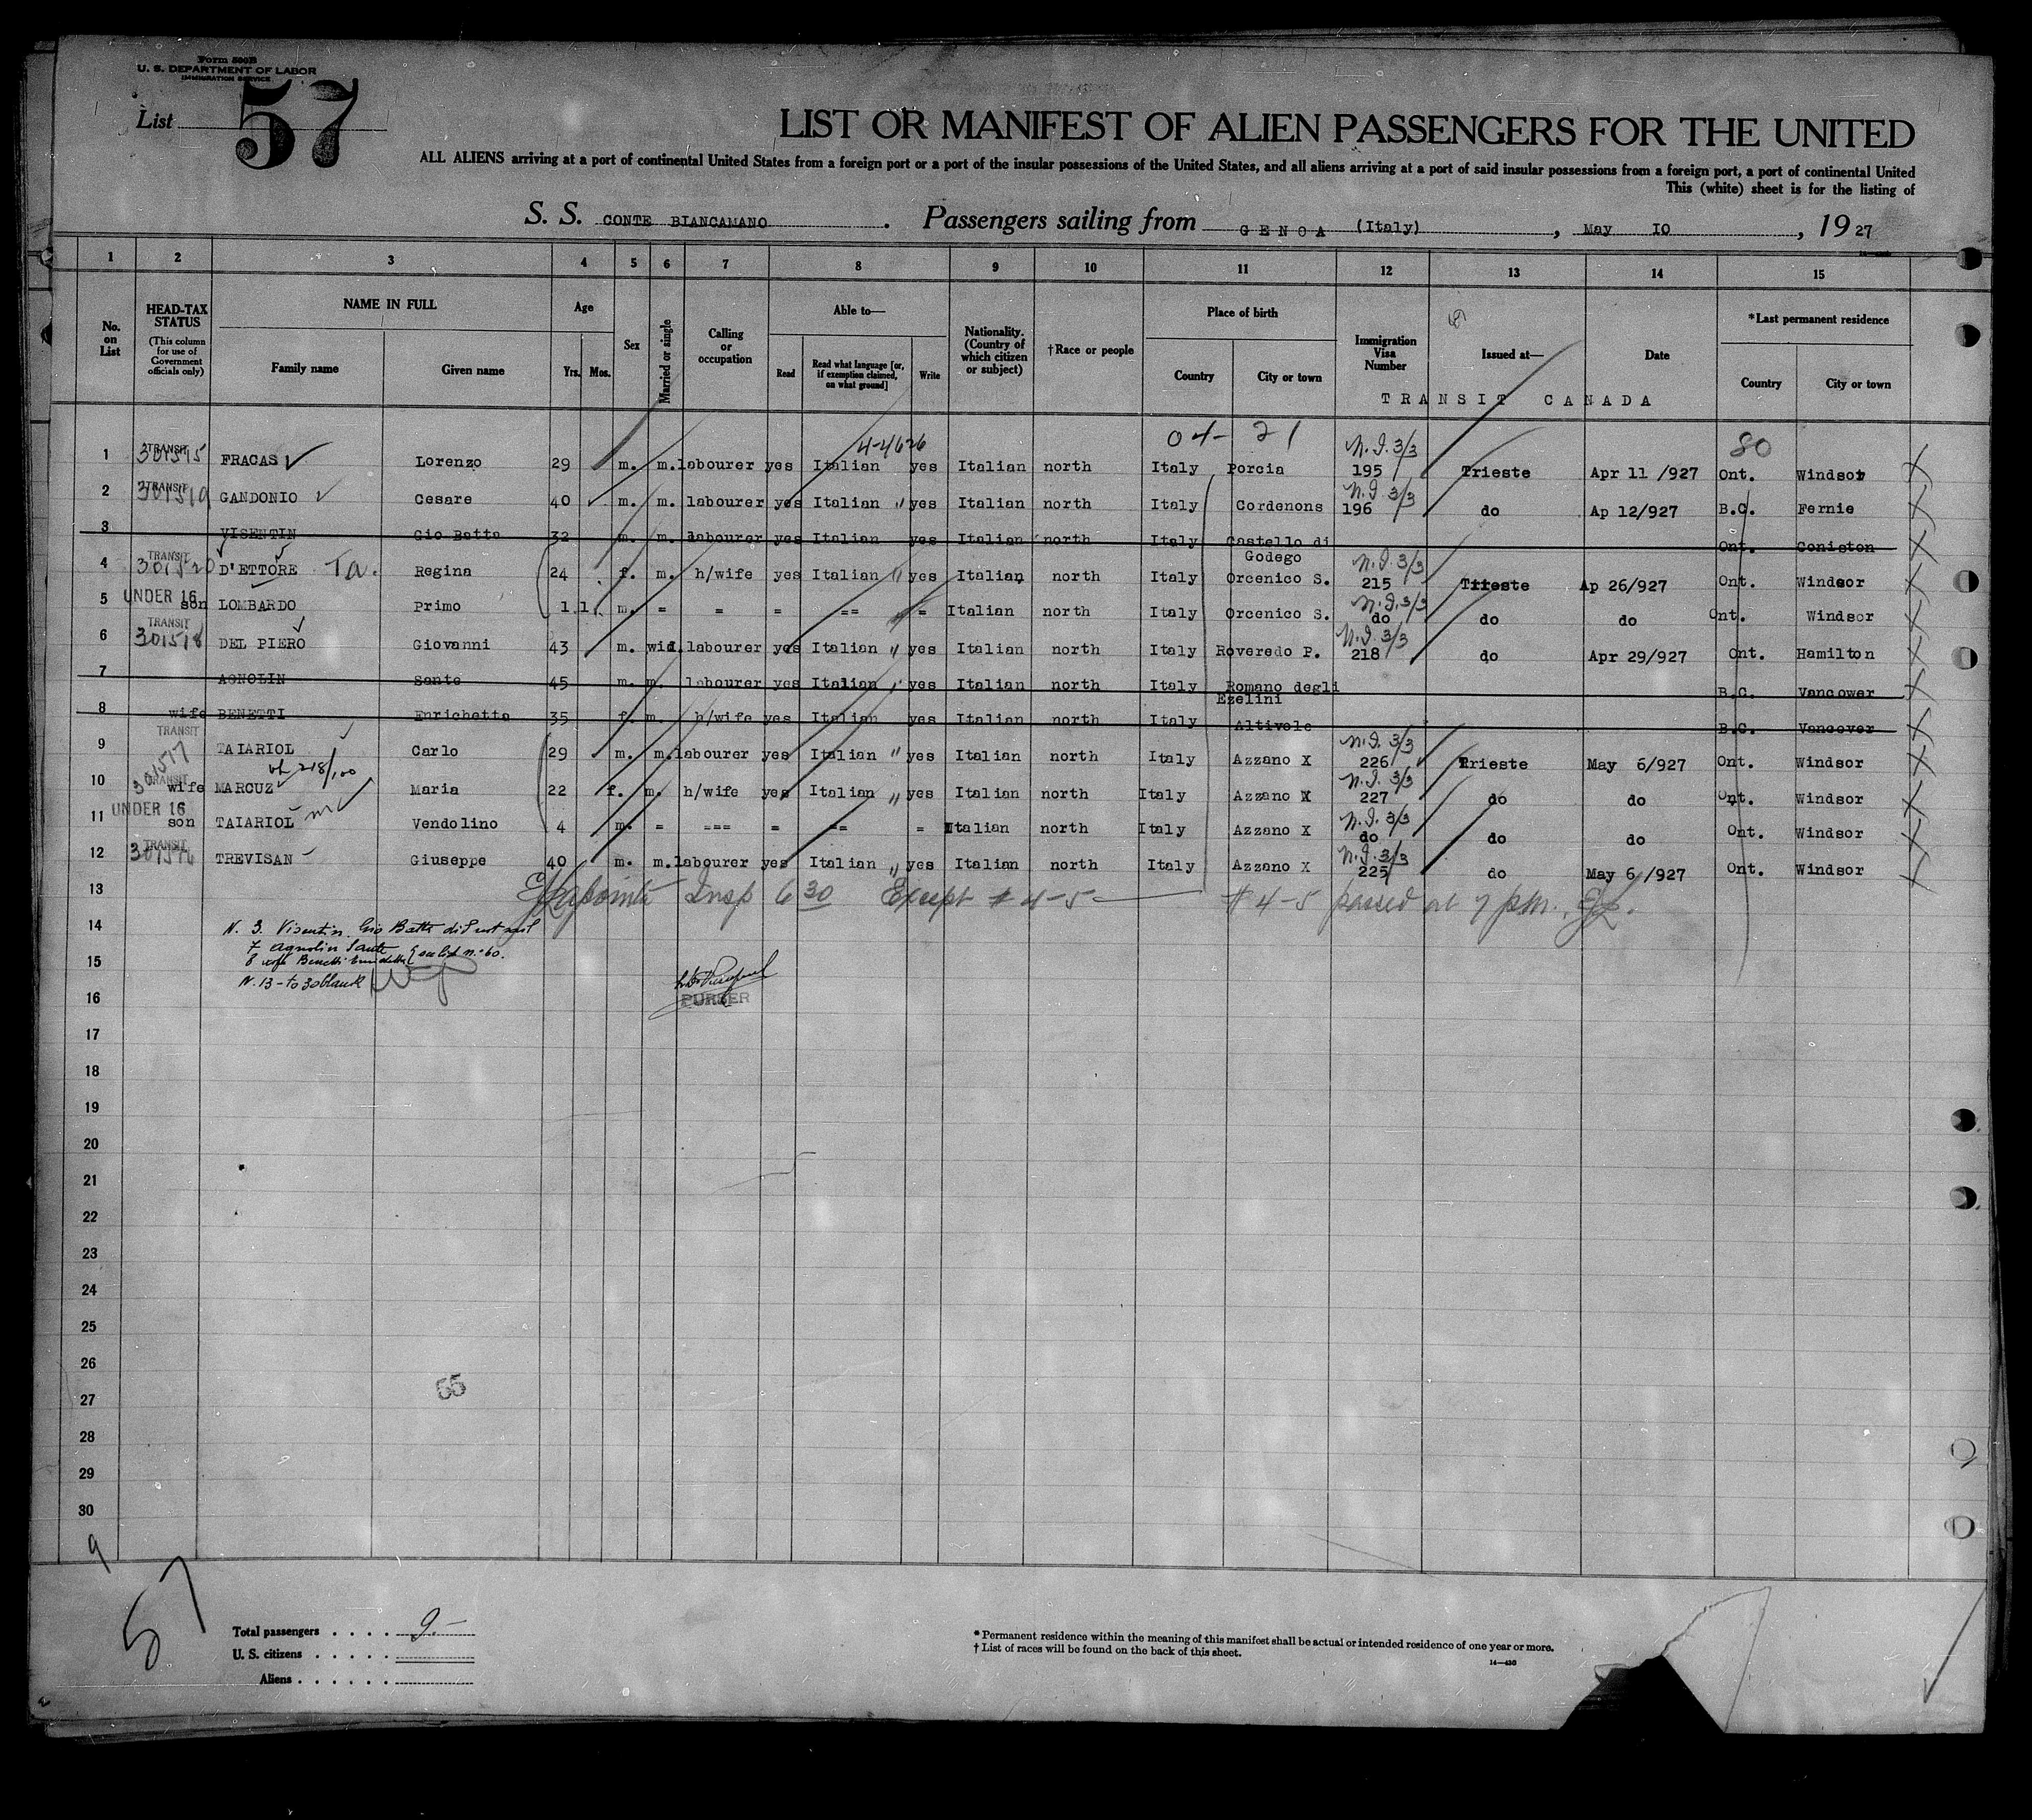 Form 500B
U. S. DEPARTMENT OF LABOR
IMMIGRATION SERVICE
List 57
LIST OR MANIFEST OF ALIEN PASSENGERS FOR THE UNITED
ALL ALIENS arriving at a port of continental United States from a foreign port or a port of the insular possessions of the United States, and all aliens arriving at a port of said insular possessions from a foreign port, a port of continental United
This (white) sheet is for the listing of
S. S. CONTE BIANCAMANO. Passengers sailing from GENOA (Italy), May 10, 1927
1 2 3 4 5 6 7 8 9 10 11 12 13 14 15
No. on List
HEAD-TAX STATUS (This column for use of Government officials only)
NAME IN FULL
Family name Given name
Age
Yrs. Mos.
Sex
Married or single
Calling or occupation
Able to—
Read Read what language [or, if exemption claimed, on what ground] Write
Nationality. (Country of which citizen or subject)
†Race or people
Place of birth
Country City or town
Immigration Visa Number
Issued at—
Date
*Last permanent residence
Country City or town
TRANSIT CANADA
4-4626 04- 21 80
1 TRANSIT 301515 FRACAS Lorenzo 29 m. m. labourer yes Italian yes Italian north Italy Porcia N.I. 3/3 195 Trieste Apr 11 /927 Ont. Windsor
2 TRANSIT 301519 GANDONIO Cesare 40 m. m. labourer yes Italian " yes Italian north Italy Cordenons N.I. 3/3 196 do Ap 12/927 B.C. Fernie
3 VISENTIN Gio Batta 32 m. m. labourer yes Italian yes Italian north Italy Castello di Godego Ont. Coniston
4 TRANSIT 301520 D'ETTORE Ta. Regina 24 f. m. h/wife yes Italian " yes Italian north Italy Orcenico S. N.I. 3/3 215 Trieste Ap 26/927 Ont. Windsor
5 UNDER 16 son LOMBARDO Primo 1.1. m. = = = == = Italian north Italy Orcenico S. N.I. 3/3 do do do Ont. Windsor
6 TRANSIT 301518 DEL PIERO Giovanni 43 m. wid. labourer yes Italian " yes Italian north Italy Roveredo P. N.I. 3/3 218 do Apr 29/927 Ont. Hamilton
7 AGNOLIN Sante 45 m. m. labourer yes Italian " yes Italian north Italy Romano degli Ezelini B.C. Vancower
8 wife BENETTI Enrichetta 35 f. m. h/wife yes Italian yes Italian north Italy Altivole B.C. Vancover
9 TRANSIT 301517 TAIARIOL Carlo 29 m. m. labourer yes Italian " yes Italian north Italy Azzano X N.I. 3/3 226 Trieste May 6/927 Ont. Windsor
10 TRANSIT wife MARCUZ Maria 22 f. m. h/wife yes Italian " yes Italian north Italy Azzano X N.I. 3/3 227 do do Ont. Windsor
11 UNDER 16 son TAIARIOL Vendolino 4 m. = === = == = Italian north Italy Azzano X N.I. 3/3 do do do Ont. Windsor
12 TRANSIT TREVISAN Giuseppe 40 m. m. labourer yes Italian " yes Italian north Italy Azzano X N.I. 3/3 225 do May 6 /927 Ont. Windsor
13 Insp 6 30 Except # 4-5 — # 4-5 passed at 7 pm.
14 N. 3. Visentin Gio Batta did not sail
7 Agnolin Sante
15 8 wife Benetti Enrichetta see list n. 60.
N. 13 - to 30 blank
16 PURSER
17
18
19
20
21
22
23
24
25
26
27 55
28
29
30
9
57
Total passengers . . . . 9-
U. S. citizens . . . . .
Aliens . . . . . .
* Permanent residence within the meaning of this manifest shall be actual or intended residence of one year or more.
† List of races will be found on the back of this sheet.
14—430